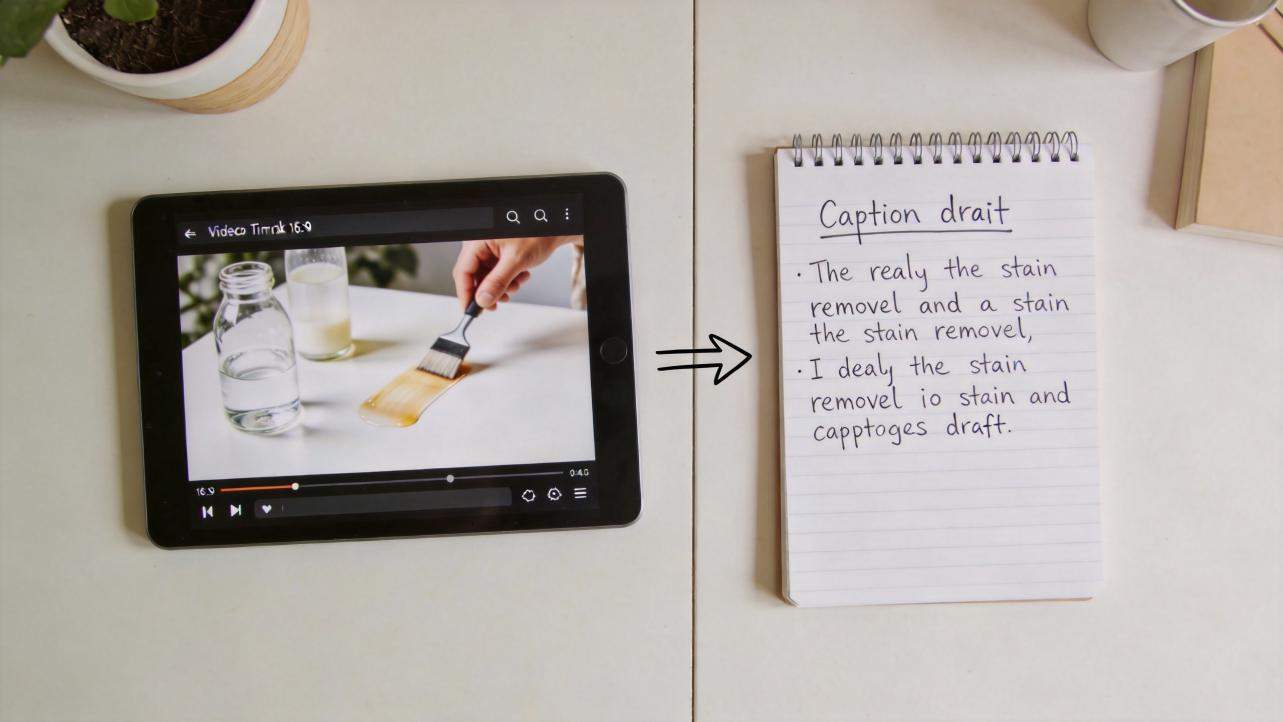 Video
16:9
Caption drait
• The realy the stain
removel and a stain
the stain removel,
• I dealy the stain
removel io stain and
capptoges draft.